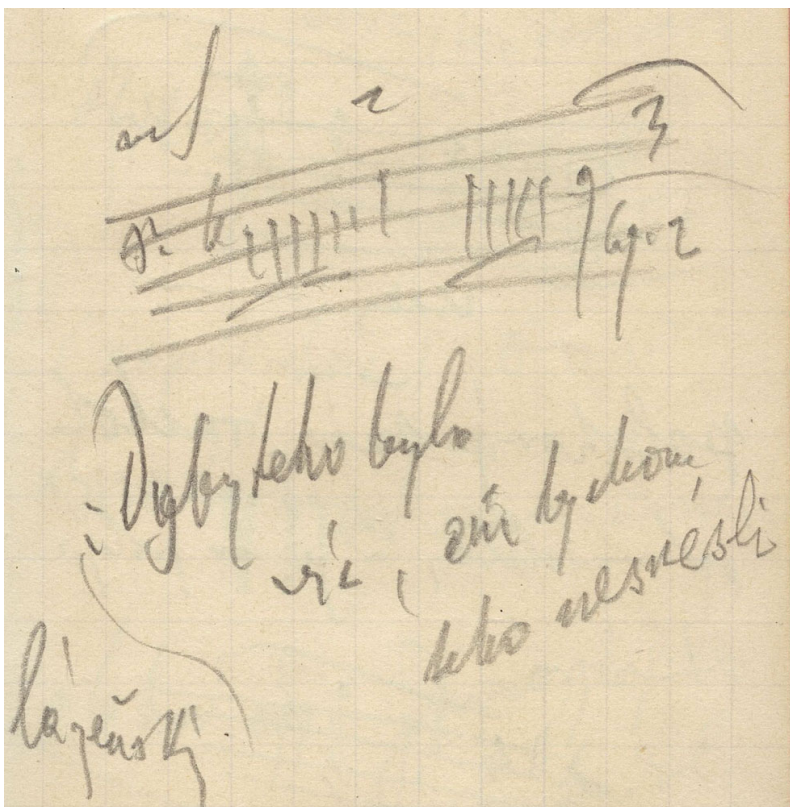 2
3
Dyby teho bylo
víc, aňi bychom
teho nesnésli
lázeňský